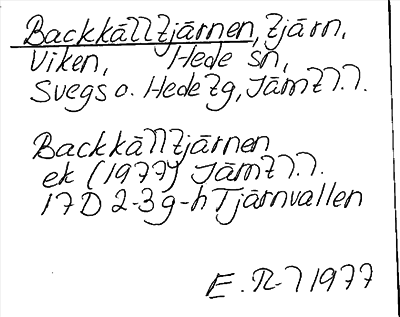 Backkälltjärnen, tjärn,
Viken, Hede sn,
Svegs o. Hede tg, Jämtl.l.
Backkälltjärnen
ek (1977) Jämtl.l.
17D 2-3g-h Tjärnvallen
E. 1977